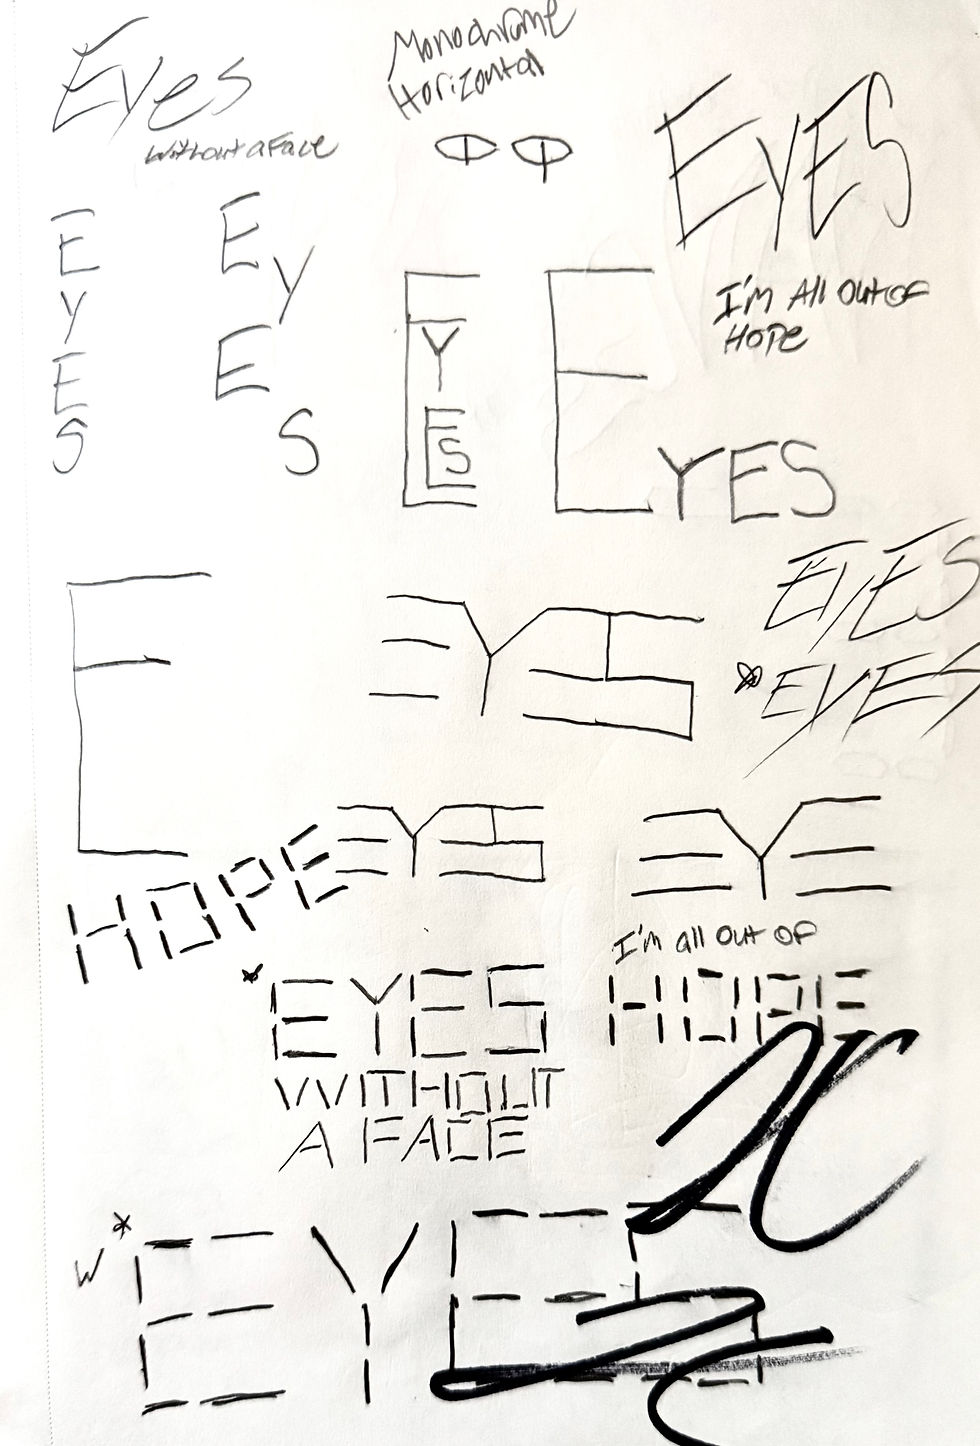 Eyes
without a Face
Monochrome
Horizontal
EYES
I'm All Out OF
HOPE
E
Y
E
S
E
y
E
S
E
Y
E
S
EYES
EYES
EYES
E
EYES
HOPE
EYES
EYE
I'm all Out OF
HOPE
EYES
WITHOUT
A FACE
W
EYES